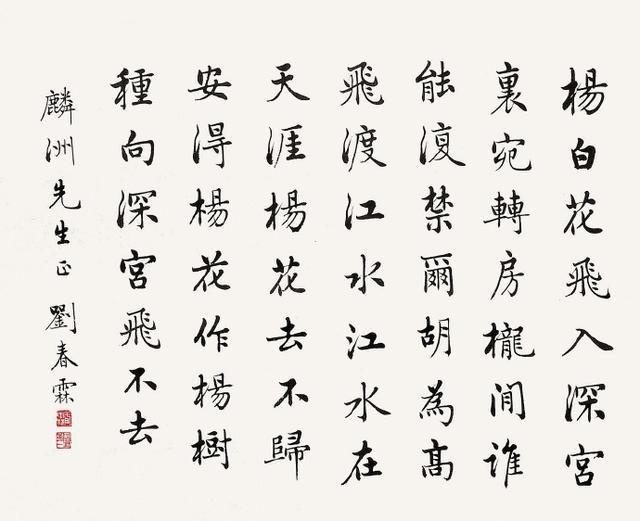 楊白花飛入深宮
裏宛轉房櫳間誰
能復禁爾胡為高
飛渡江水江水在
天涯楊花去不歸
安得楊花作楊樹
種向深宮飛不去
麟洲先生正 劉春霖